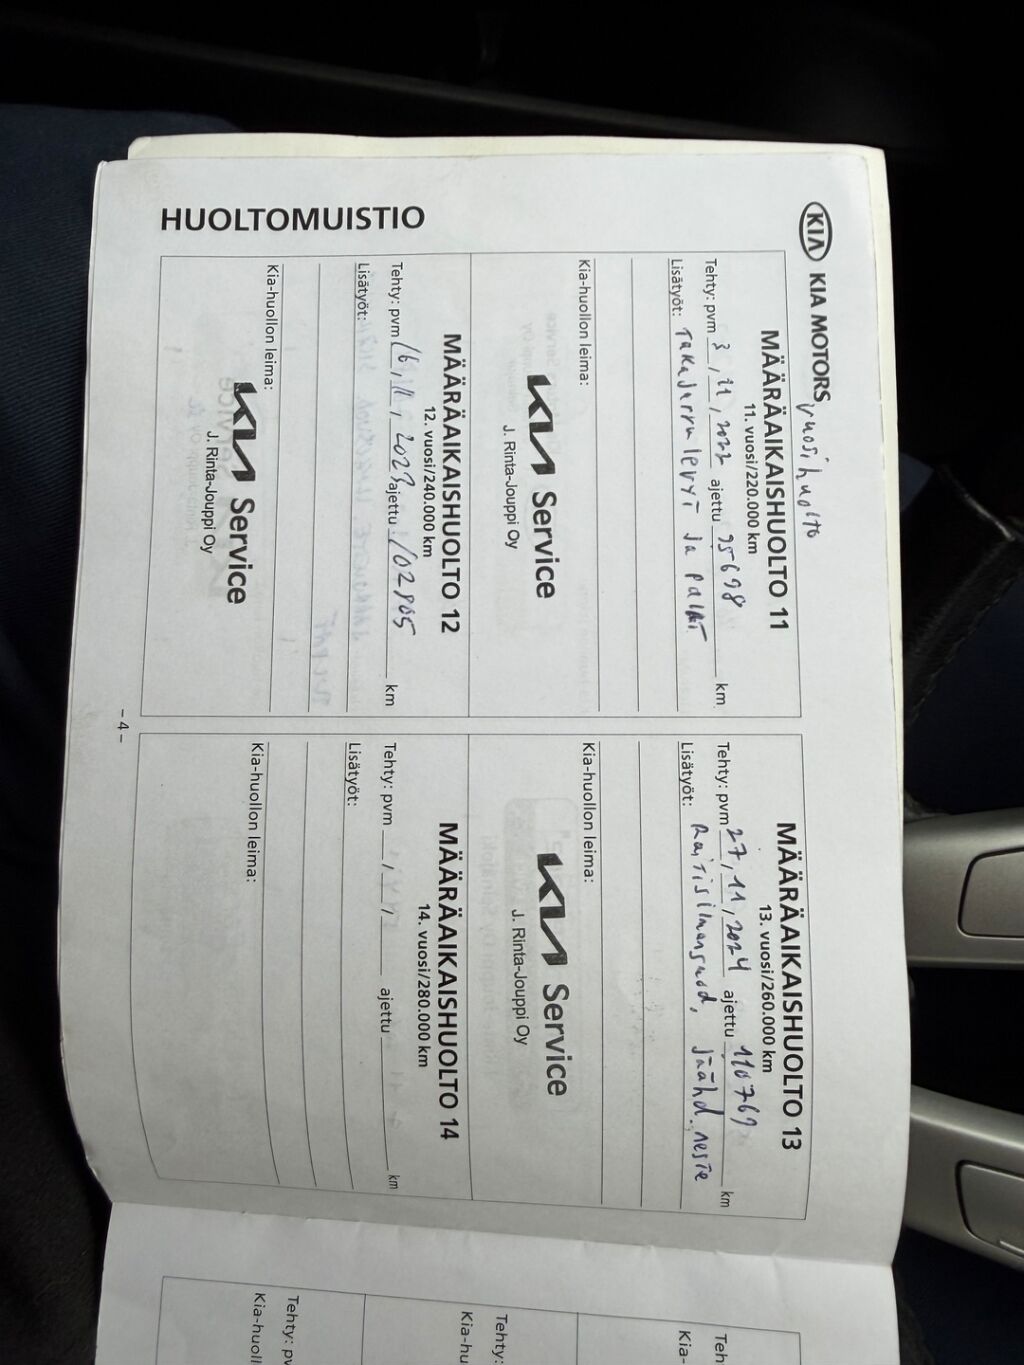 KIA KIA MOTORS
vuosihuolto
HUOLTOMUISTIO
MÄÄRÄAIKAISHUOLTO 11
11. vuosi/220.000 km
Tehty: pvm 3, 11, 2022 ajettu 95698 km
Lisätyöt: Takajarrulevyt ja palat
Kia-huollon leima:
KIA Service
J. Rinta-Jouppi Oy
MÄÄRÄAIKAISHUOLTO 12
12. vuosi/240.000 km
Tehty: pvm 16, 11, 2023 ajettu 102905 km
Lisätyöt:
Kia-huollon leima:
KIA Service
J. Rinta-Jouppi Oy
MÄÄRÄAIKAISHUOLTO 13
13. vuosi/260.000 km
Tehty: pvm 27, 11, 2024 ajettu 110769 km
Lisätyöt: Raitisilmansuod, Jäähd. neste
Kia-huollon leima:
KIA Service
J. Rinta-Jouppi Oy
MÄÄRÄAIKAISHUOLTO 14
14. vuosi/280.000 km
Tehty: pvm , , ajettu km
Lisätyöt:
Kia-huollon leima:
– 4 –
Tehty: pv
Kia-huoll
Tehty:
Kia-hu
Teh
Kia-